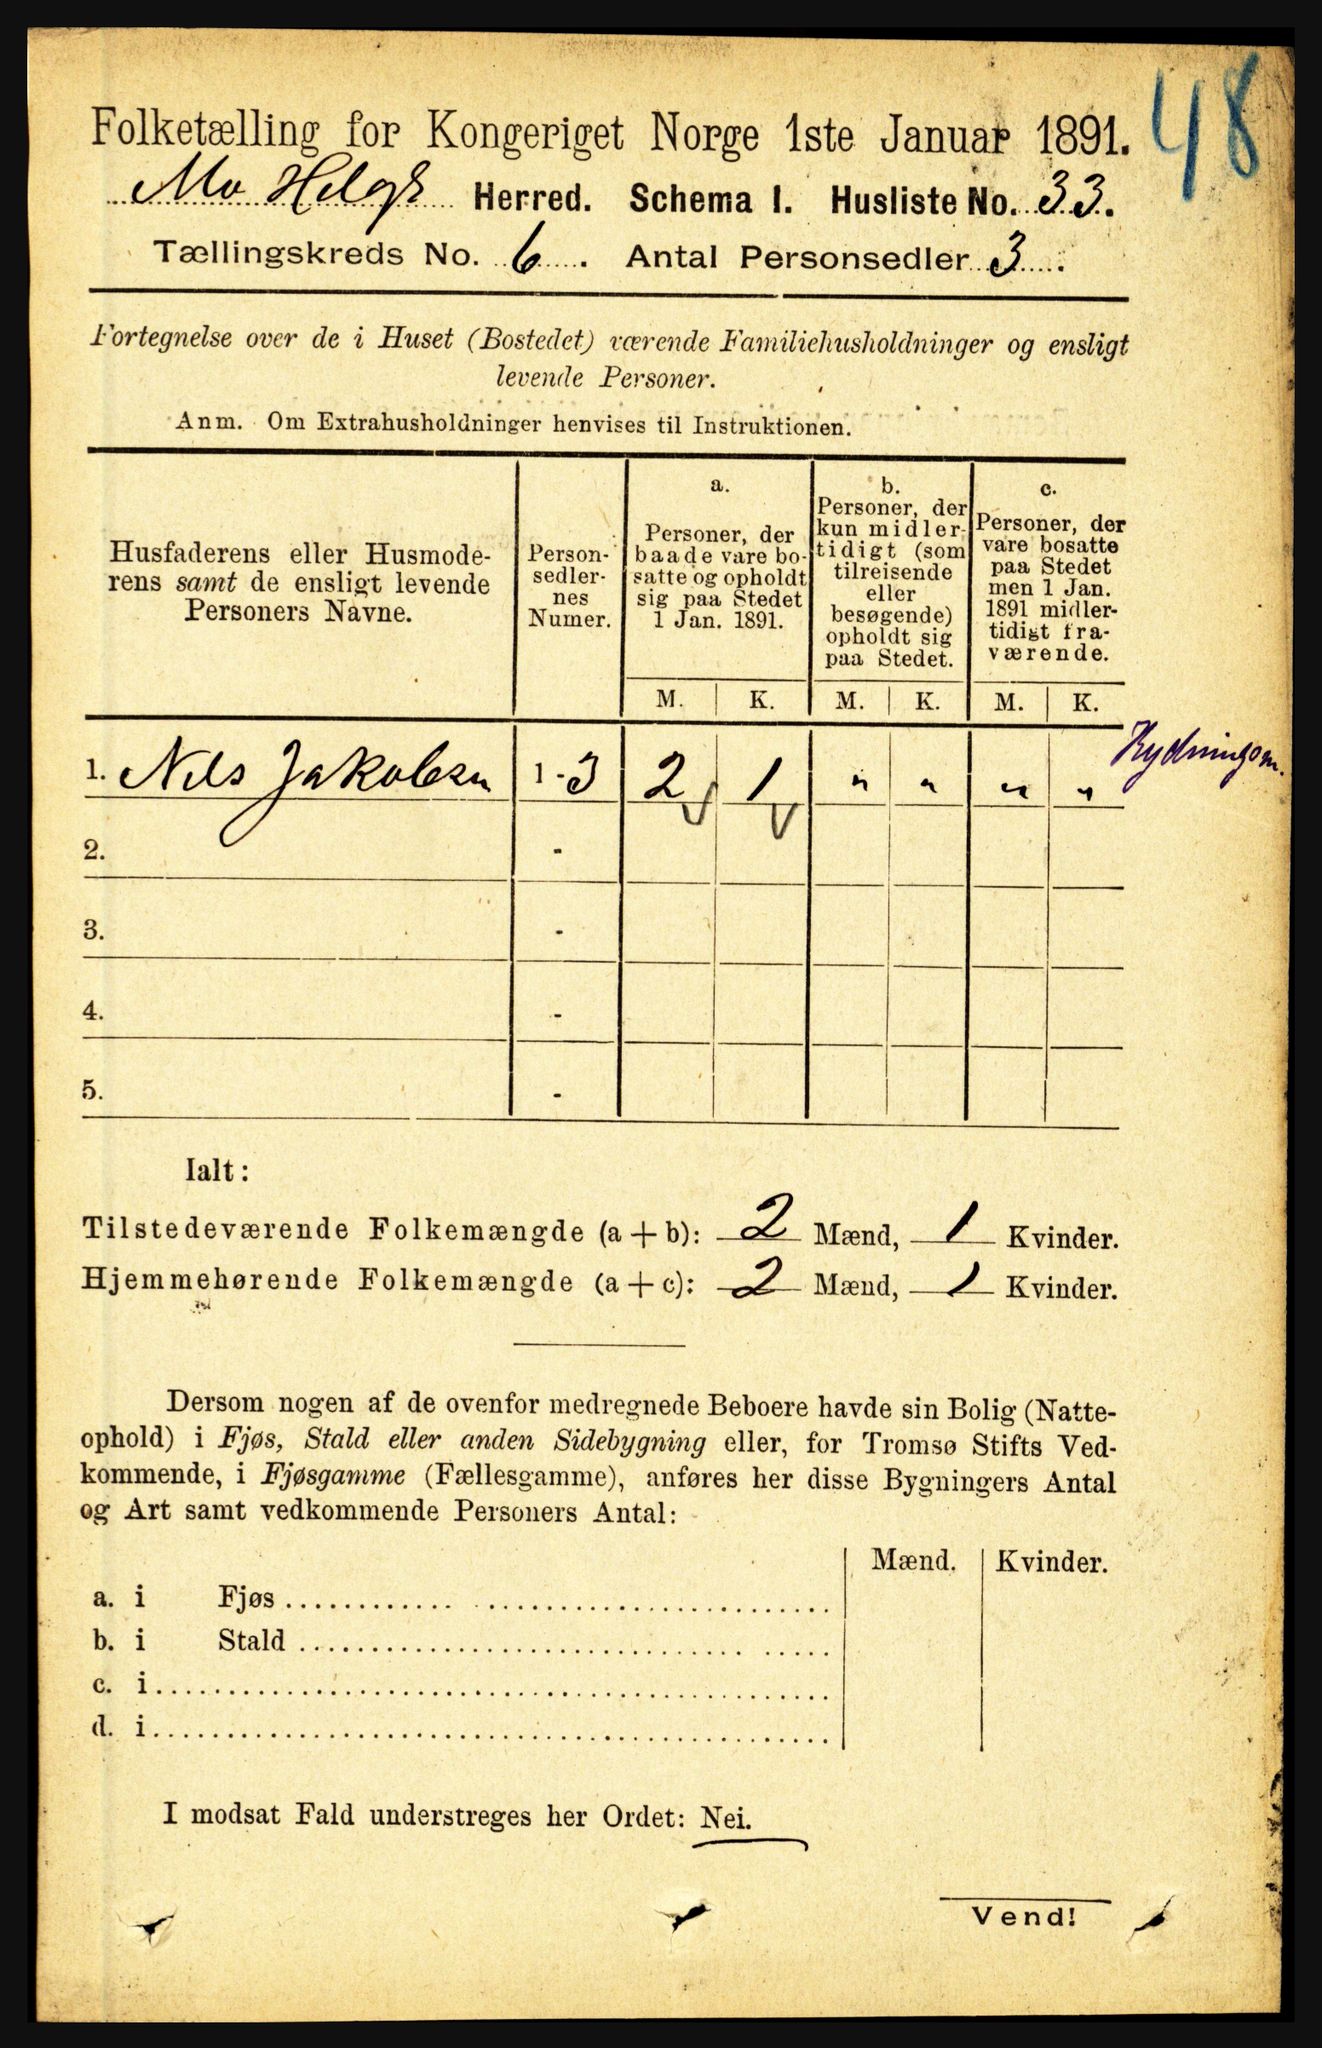 48
Folketælling for Kongeriget Norge 1ste Januar 1891.
Mo Helg: Herred. Schema I. Husliste No. 33.
Tællingskreds No. 6. Antal Personsedler 3.
Fortegnelse over de i Huset (Bostedet) værende Familiehusholdninger og ensligt
levende Personer.
Anm. Om Extrahusholdninger henvises til Instruktionen.
Husfaderens eller Husmode-
rens samt de ensligt levende
Personers Navne.
Person-
sedler-
nes
Numer.
a.
Personer, der
baade vare bo-
satte og opholdt
sig paa Stedet
1 Jan. 1891.
b.
Personer, der
kun midler-
tidigt (som
tilreisende
eller
besøgende)
opholdt sig
paa Stedet.
c.
Personer, der
vare bosatte
paa Stedet
men 1 Jan.
1891 midler-
tidigt fra-
værende.
M. K. M. K. M. K.
1. Nels Jakobsen 1-3 2 1 " " " "
2. -
3. -
4. -
5. -
Ialt:
Tilstedeværende Folkemængde (a + b): 2 Mænd, 1 Kvinder.
Hjemmehørende Folkemængde (a + c): 2 Mænd, 1 Kvinder.
Dersom nogen af de ovenfor medregnede Beboere havde sin Bolig (Natte-
ophold) i Fjøs, Stald eller anden Sidebygning eller, for Tromsø Stifts Ved-
kommende, i Fjøsgamme (Fællesgamme), anføres her disse Bygningers Antal
og Art samt vedkommende Personers Antal:
Mænd. Kvinder.
a. i Fjøs
b. i Stald
c. i
d. i
I modsat Fald understreges her Ordet: Nei.
Vend!